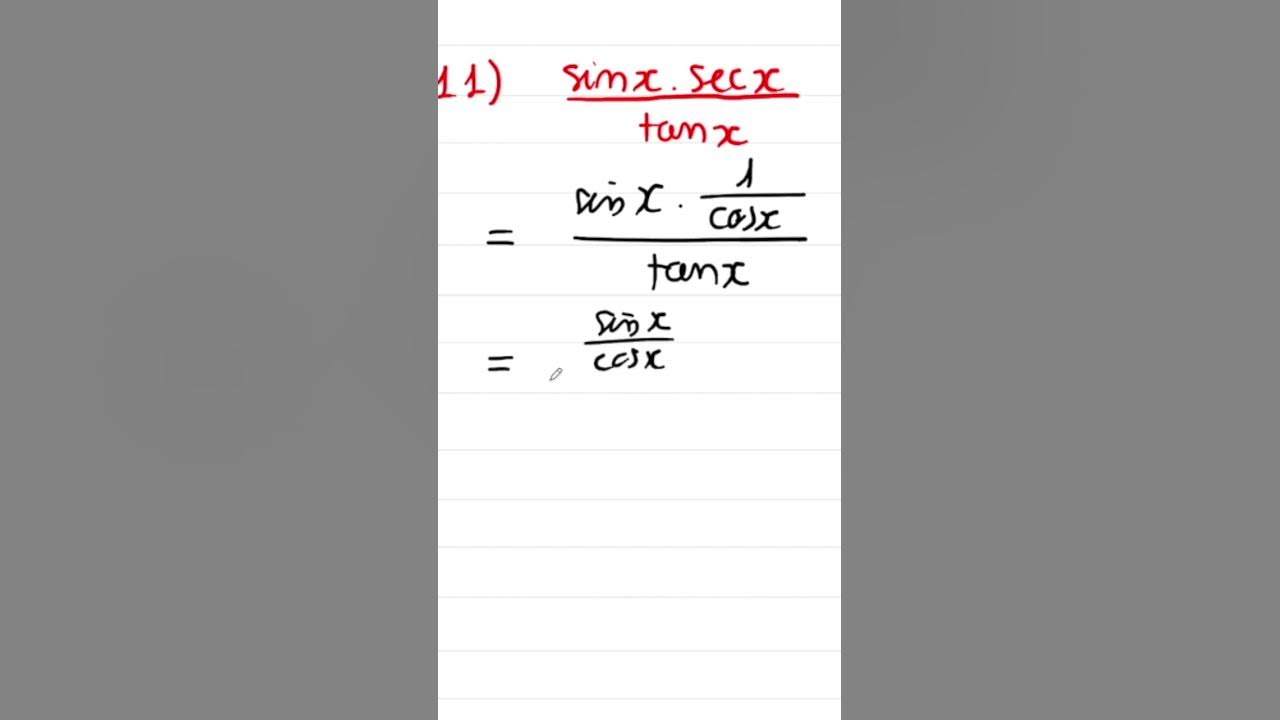 11) sinx . secx
tanx
1
sinx .
cosx
=
tanx
sinx
=
cosx